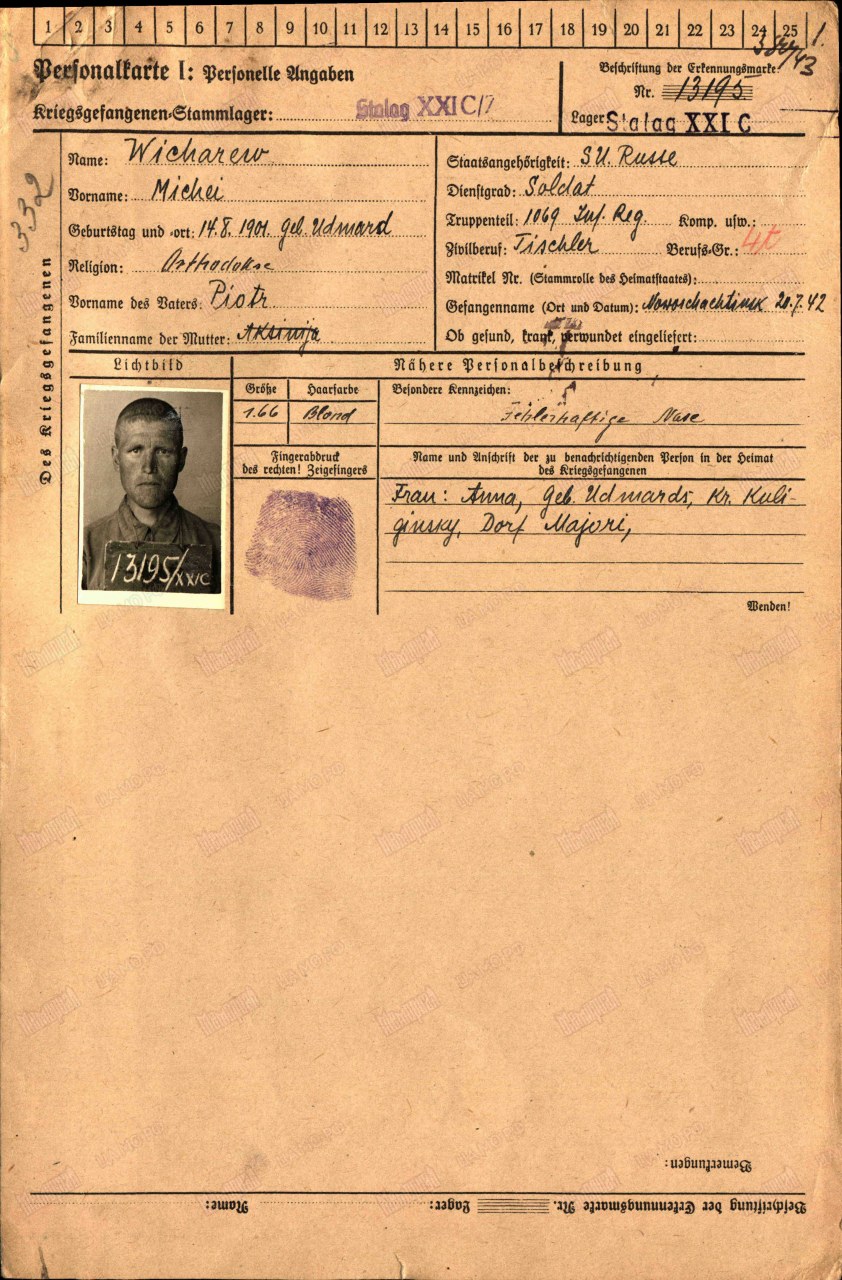 1 2 3 4 5 6 7 8 9 10 11 12 13 14 15 16 17 18 19 20 21 22 23 24 25
1.
Personalkarte I: Personelle Angaben
Kriegsgefangenen-Stammlager: Stalag XXI C/Z
Beschriftung der Erkennungsmarke
Nr. 13195
Lager: Stalag XXI C
332
Des Kriegsgefangenen
Name: Wicharew
Vorname: Michei
Geburtstag und -ort: 14.8. 1901. geb. Udmard
Religion: Orthodokse
Vorname des Vaters: Piotr
Familienname der Mutter: Aksinija
Staatsangehörigkeit: S.U. Russe
Dienstgrad: Soldat
Truppenteil: 1069 Inf. Reg. Komp. usw.:
Zivilberuf: Tischler Berufs-Gr.: 4t
Matrikel Nr. (Stammrolle des Heimatstaates):
Gefangenname (Ort und Datum): Nowoschachtinsk 20.7.42
Ob gesund, krank, verwundet eingeliefert:
Lichtbild
Nähere Personalbeschreibung
Größe
Haarfarbe
Besondere Kennzeichen:
1.66
Blond
Fehlerhaftige Nase
Fingerabdruck
des rechten! Zeigefingers
Name und Anschrift der zu benachrichtigenden Person in der Heimat
des Kriegsgefangenen
Frau: Anna, Geb. Udmards, Kr. Kuli-
ginsky, Dorf Majori,
13195/XXIC
Wenden!
Bemerkungen:
Beschriftung der Erkennungsmarke Nr. Lager: Name: